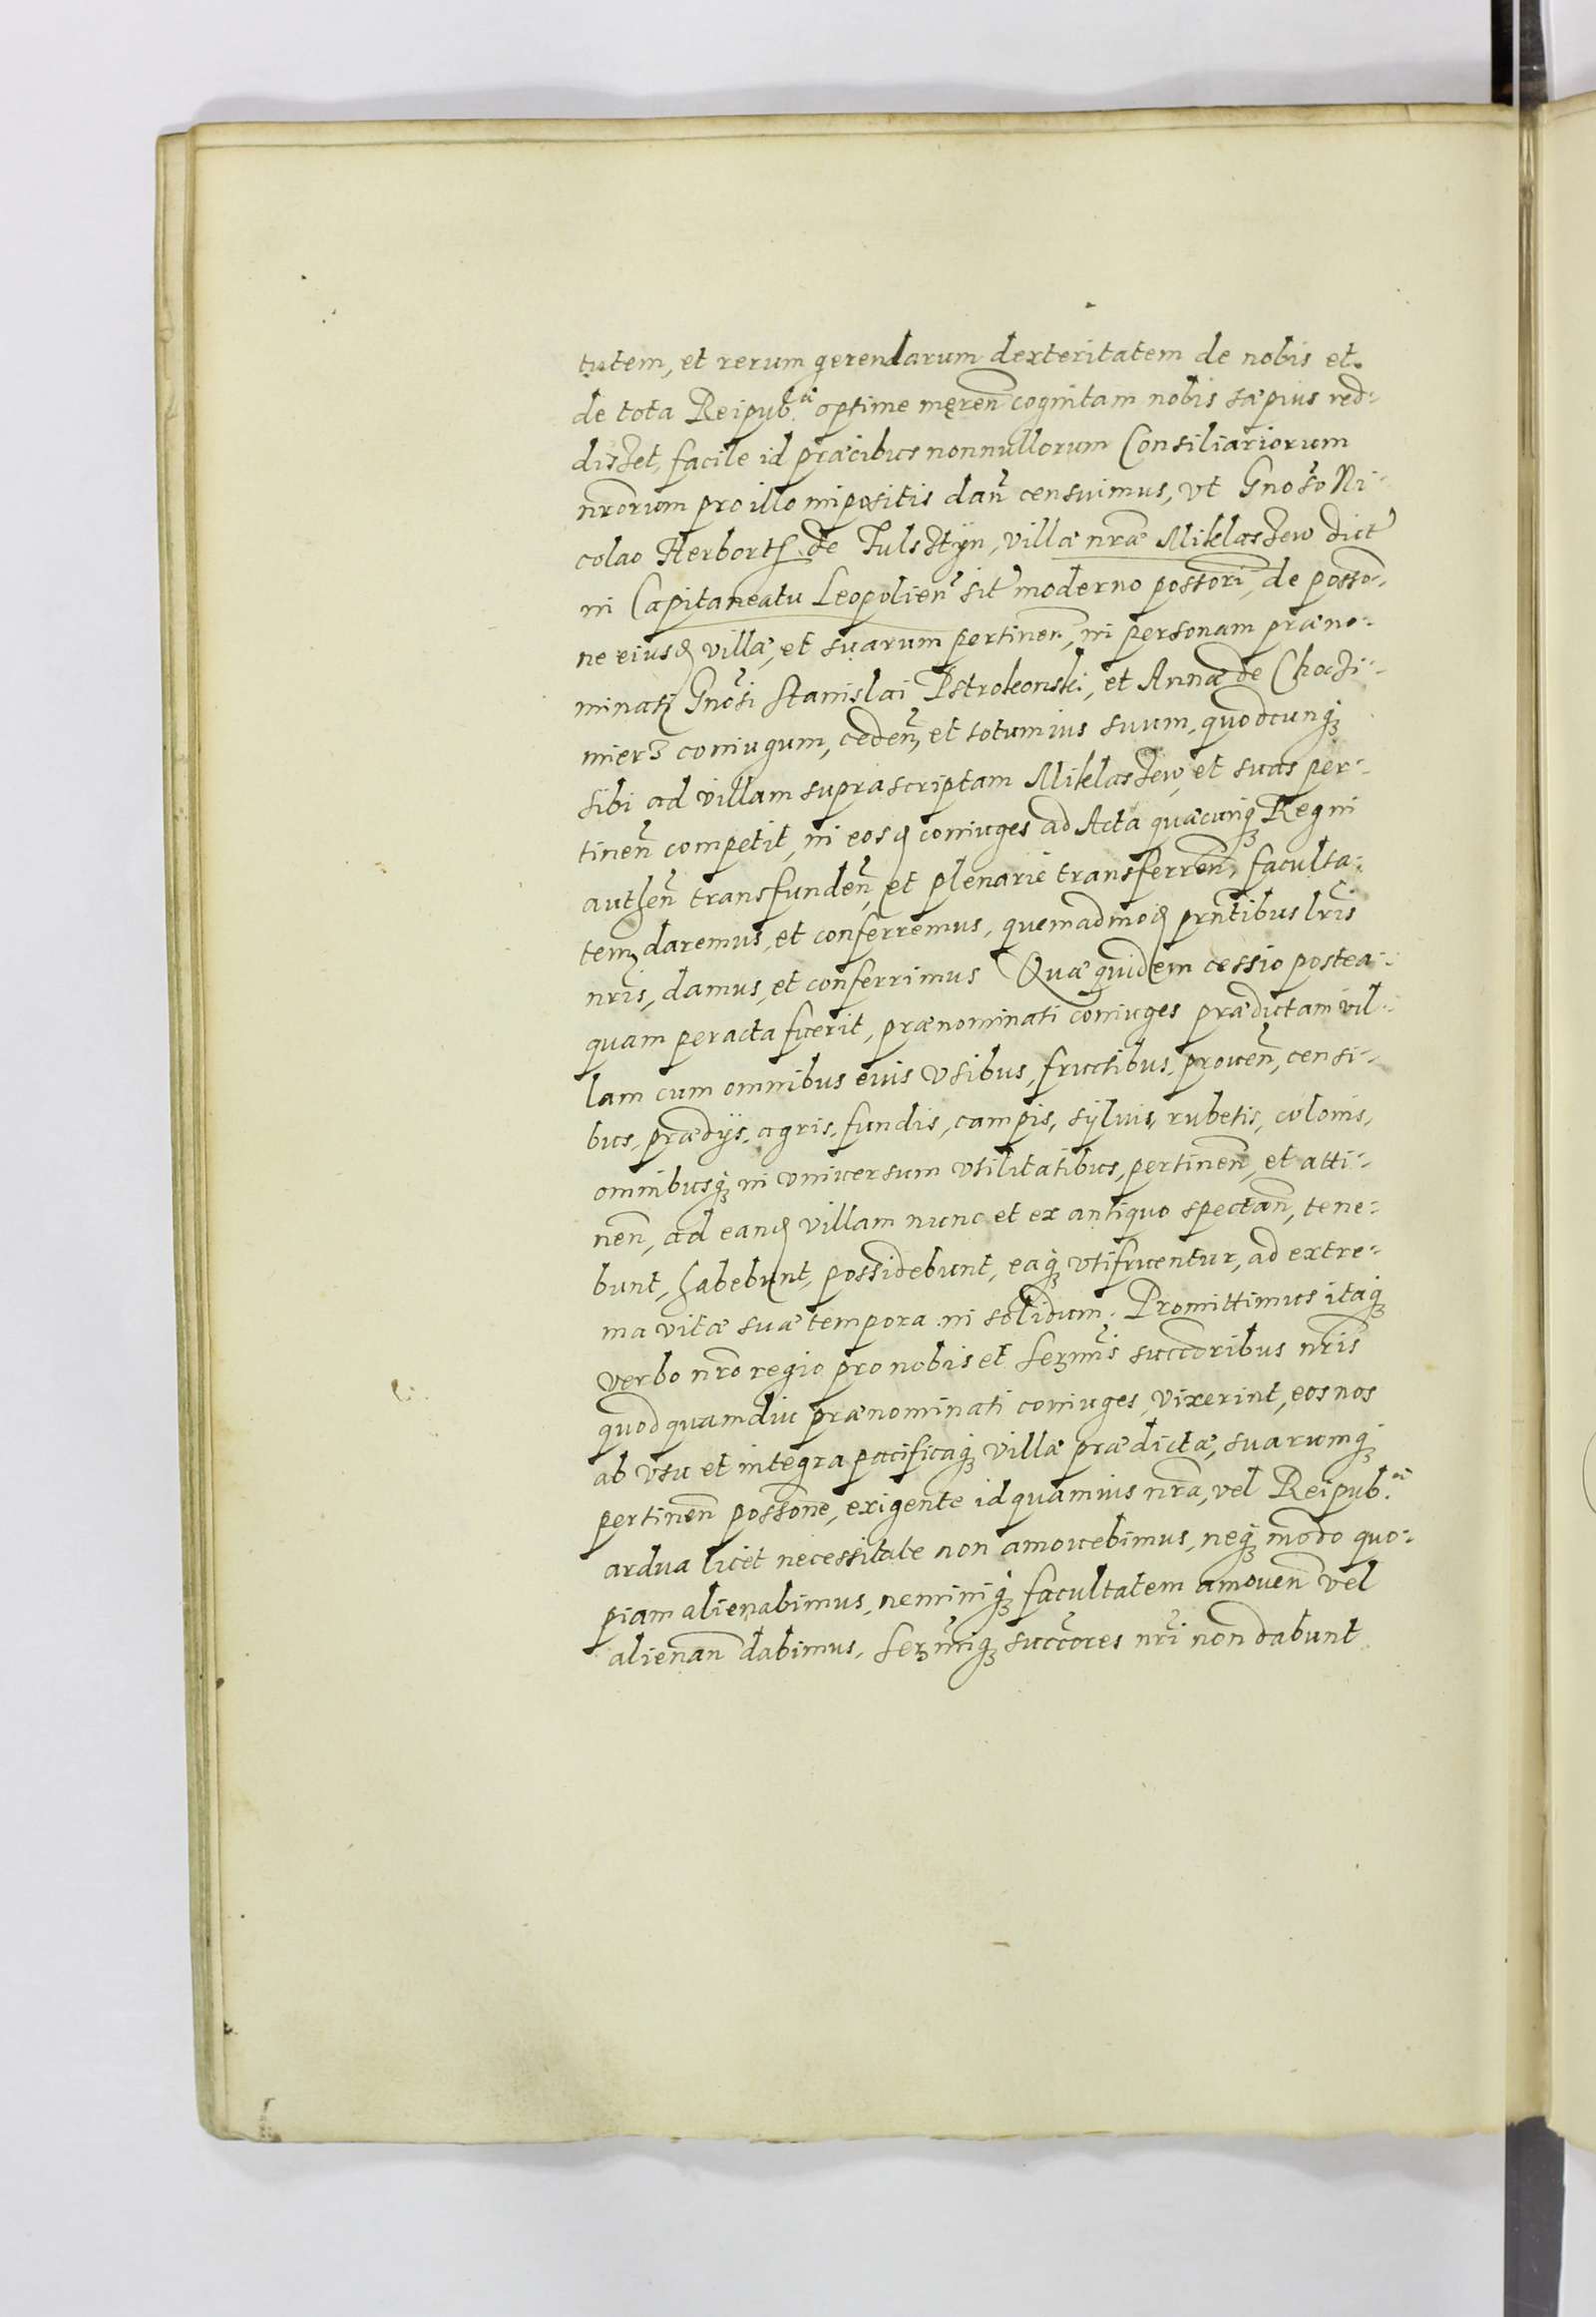 tutem, et rerum gerendarum dexteritatem de nobis et
de tota Reipub.ca optime meren̄ cognitam nobis sæpius red-
disset, facile id præcibus nonnullorum Consiliariorum
nr̄orum pro illo impositis dan̄ censuimus, vt Gnoso Ni-
colao Herborth de Fulsztyn, villæ nr̄æ Miklaszew dict
in Capitaneatu Leopolien̄ sit moderno possori, de posso-
ne eiusd villæ, et suarum pertinen̄, in personam præno-
minat Gnosi Stanislai Pstrokonski, et Annæ de Chozi-
mierz coniugum, ceden̄, et totum ius suum, quodcunq
sibi ad villam suprascriptam Miklaszew, et suas per-
tinen̄ competit, in eosd coniuges ad Acta quæcunq Regni
authen̄ transfunden̄, et plenarie transferren̄, faculta-
tem daremus, et conferremus, quemadmod pn̄tibus lr̄is
nr̄is, damus, et conferrimus Quæ quidem cessio postea-
quam peracta fuerit, prænominati coniuges prædictam vil-
lam cum omnibus eius vsibus, fructibus, prouen̄, censi-
bus, prædijs, agris, fundis, campis, syluis, rubetis, colonis,
omnibusq in vniuersum vtilitatibus, pertinen̄, et atti-
nen̄, ad eand villam nunc et ex antiquo spectan̄, tene-
bunt, habebunt, possidebunt, eaq vtifruentur, ad extre-
ma vitæ suæ tempora in solidum. Promittimus itaq
verbo nr̄o regio pro nobis et Serm̄is succoribus nr̄is
quod quamdiu prænominati coniuges, vixerint, eos nos
ab vsu et integra pacificaq villæ prædictæ, suarumq
pertinen̄ possone, exigente id quamuis nr̄a, vel Reipub.ca
ardua licet necessitate non amouebimus, neq modo quo-
piam alienabimus, neminiq facultatem amouen̄ vel
alienan̄ dabimus, Serm̄iq succores nr̄i non dabunt